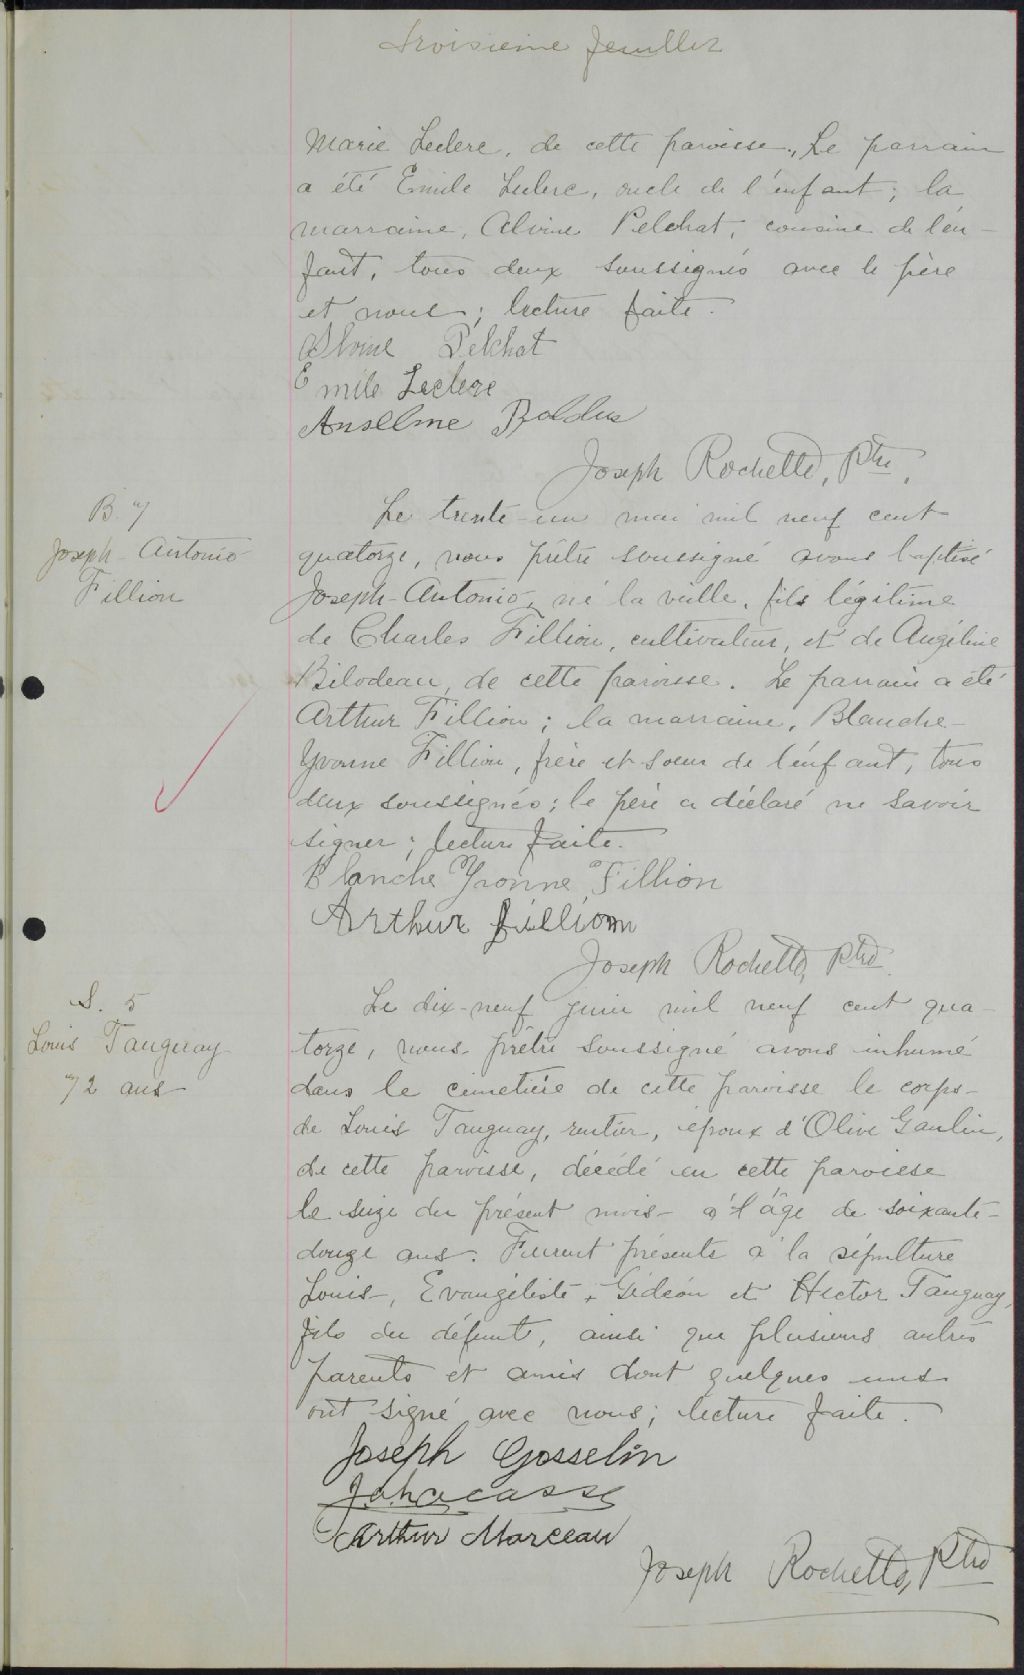 Troisième feuillet
Marie Leclerc, de cette paroisse. Le parrain
a été Emile Leclerc, oncle de l'enfant; la
marraine, Alvine Pelchat, cousine de l'en-
fant, tous deux soussignés avec le père
et nous; lecture faite.
Alvine Pelchat
Emile Leclerc
Anselme Bolduc
Joseph Rochette, Ptre.
B. 7
Joseph-Antonio
Fillion
Le trente-un mai mil neuf cent
quatorze, nous prêtre soussigné avons baptisé
Joseph-Antonio, né la veille, fils légitime
de Charles Fillion, cultivateur, et de Angéline
Bilodeau, de cette paroisse. Le parrain a été
Arthur Fillion; la marraine, Blanche-
Yvonne Fillion, frère et soeur de l'enfant, tous
deux soussignés; le père a déclaré ne savoir
signer; lecture faite.
Blanche Yvonne Fillion
Arthur Fillion
Joseph Rochette, Ptre.
S. 5
Louis Tanguay
72 ans
Le dix-neuf juin mil neuf cent qua-
torze, nous prêtre soussigné avons inhumé
dans le cimetière de cette paroisse le corps
de Louis Tanguay, rentier, époux d'Olive Gaulin,
de cette paroisse, décédé en cette paroisse
le seize du présent mois à l'âge de soixante-
douze ans. Furent présents à la sépulture
Louis, Evangéliste, Gédéon et Hector Tanguay,
fils du défunt, ainsi que plusieurs autres
parents et amis dont quelques uns
ont signé avec nous; lecture faite.
Joseph Gosselin
Arthur Marceau
Joseph Rochette, Ptre